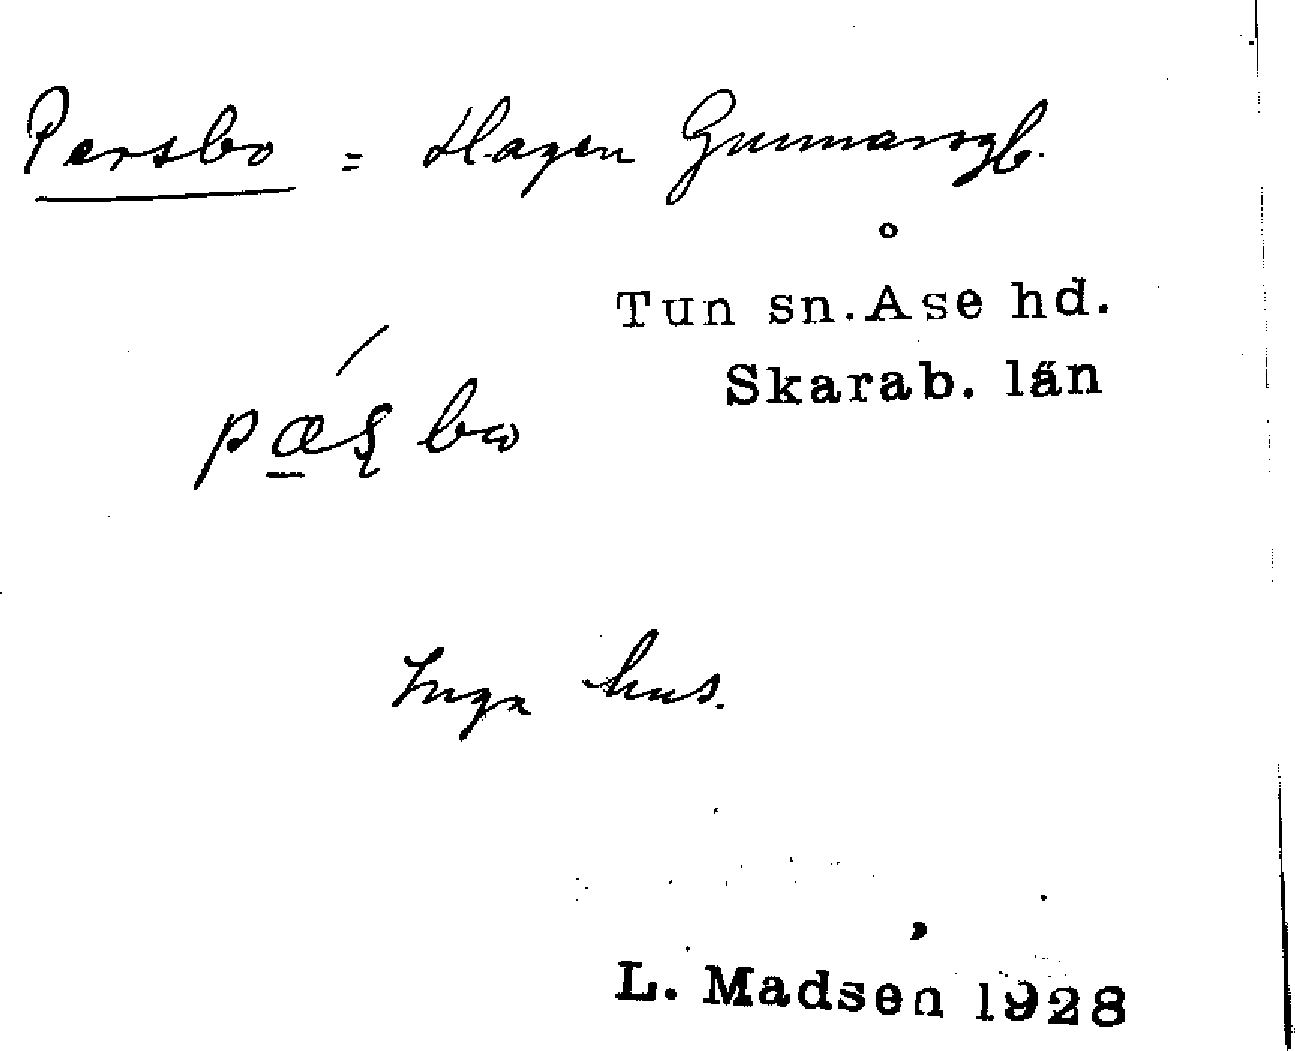 Persbo = Hagen Gunnarsgb.
Tun sn. Åse hd.
Skarab. län
Inga hus.
L. Madsen 1928